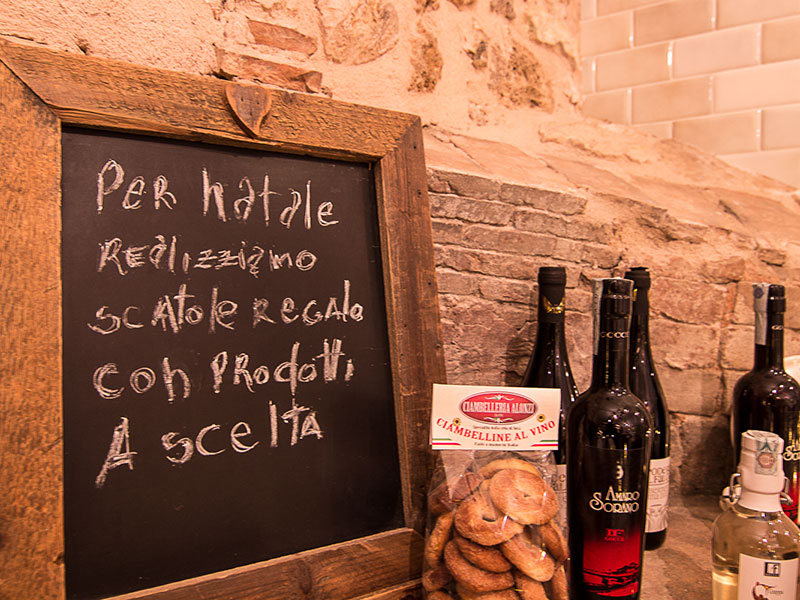 Per Natale
Realizziamo
scatole regalo
con prodotti
A scelta
CIAMBELLERIA ALONZI
CIAMBELLINE AL VINO
AMARO
SORANO